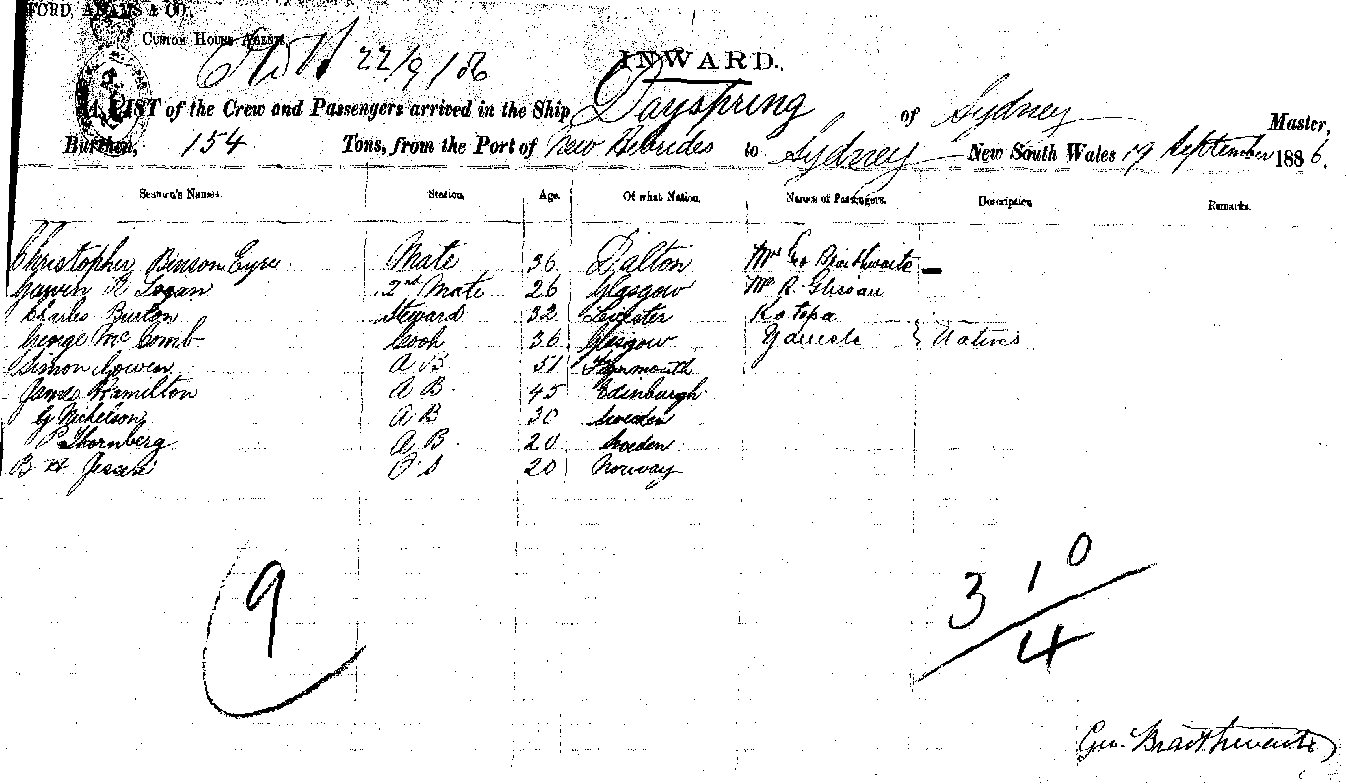 FORD, ADAMS & CO.
CUSTOM HOUSE AGENTS.
22/9/86
INWARD.
A LIST of the Crew and Passengers arrived in the Ship Dayspring of Sydney Master,
Burthen, 154 Tons, from the Port of New Hebrides to Sydney New South Wales 19 September 1886.
Seamen's Names. Station. Age. Of what Nation. Names of Passengers. Description Remarks.
Christopher Binson Eyre Mate 36 Dalton Mrs Geo Braithwaite
Gawen R Logan 2nd Mate 26 Glasgow Mr R.
Charles Burton Steward 32 Leicester Katopa
George McComb Cook 36 Glasgow } Natives
Simon Cowen A B 51
James Hamilton A B. 45 Edinburgh
G Nichelson A B 30 Sweden
P. Thornberg A B. 20 Sweden
B H Jessen O. S 20 Norway
9
3 1 0
4
Geo. Braithwaite